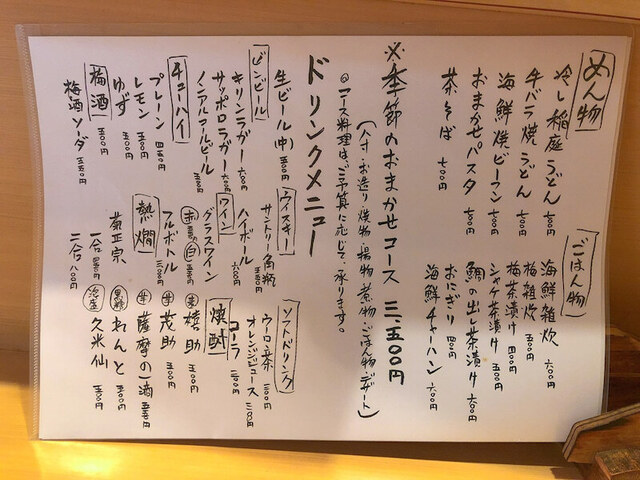 めん物
冷し稲庭うどん 七〇〇円
牛バラ焼うどん 七〇〇円
海鮮焼ビーフン 七〇〇円
おまかせパスタ 七〇〇円
茶そば 七〇〇円
ごはん物
海鮮雑炊 六〇〇円
梅雑炊 五〇〇円
梅茶漬け 四〇〇円
シャケ茶漬け 五〇〇円
鯛の出し茶漬け 六〇〇円
おにぎり 四〇〇円
海鮮チャーハン 六〇〇円
※季節のおまかせコース 三、五〇〇円
(八寸・お造り・焼物・揚物・煮物・ごはん物・デザート)
◎コース料理は、ご予算に応じて、承ります。
ドリンクメニュー
生ビール(中) 五〇〇円
ビンビール
キリンラガー 六〇〇円
サッポロラガー 六〇〇円
ノンアルコールビール
チューハイ
プレーン 四五〇円
レモン 五〇〇円
ゆず 五〇〇円
梅酒
梅酒ソーダ 五五〇円
ウイスキー
サントリー角瓶
ハイボール
ワイン
グラスワイン
赤 白
フルボトル
熱燗
菊正宗
一合 四〇〇円
二合 八〇〇円
ソフトドリンク
ウーロン茶
オレンジジュース
コーラ
焼酎
麦 喜助
芋 茂助 五〇〇円
芋 薩摩の一滴
れんと 五〇〇円
泡盛 久米仙 五〇〇円